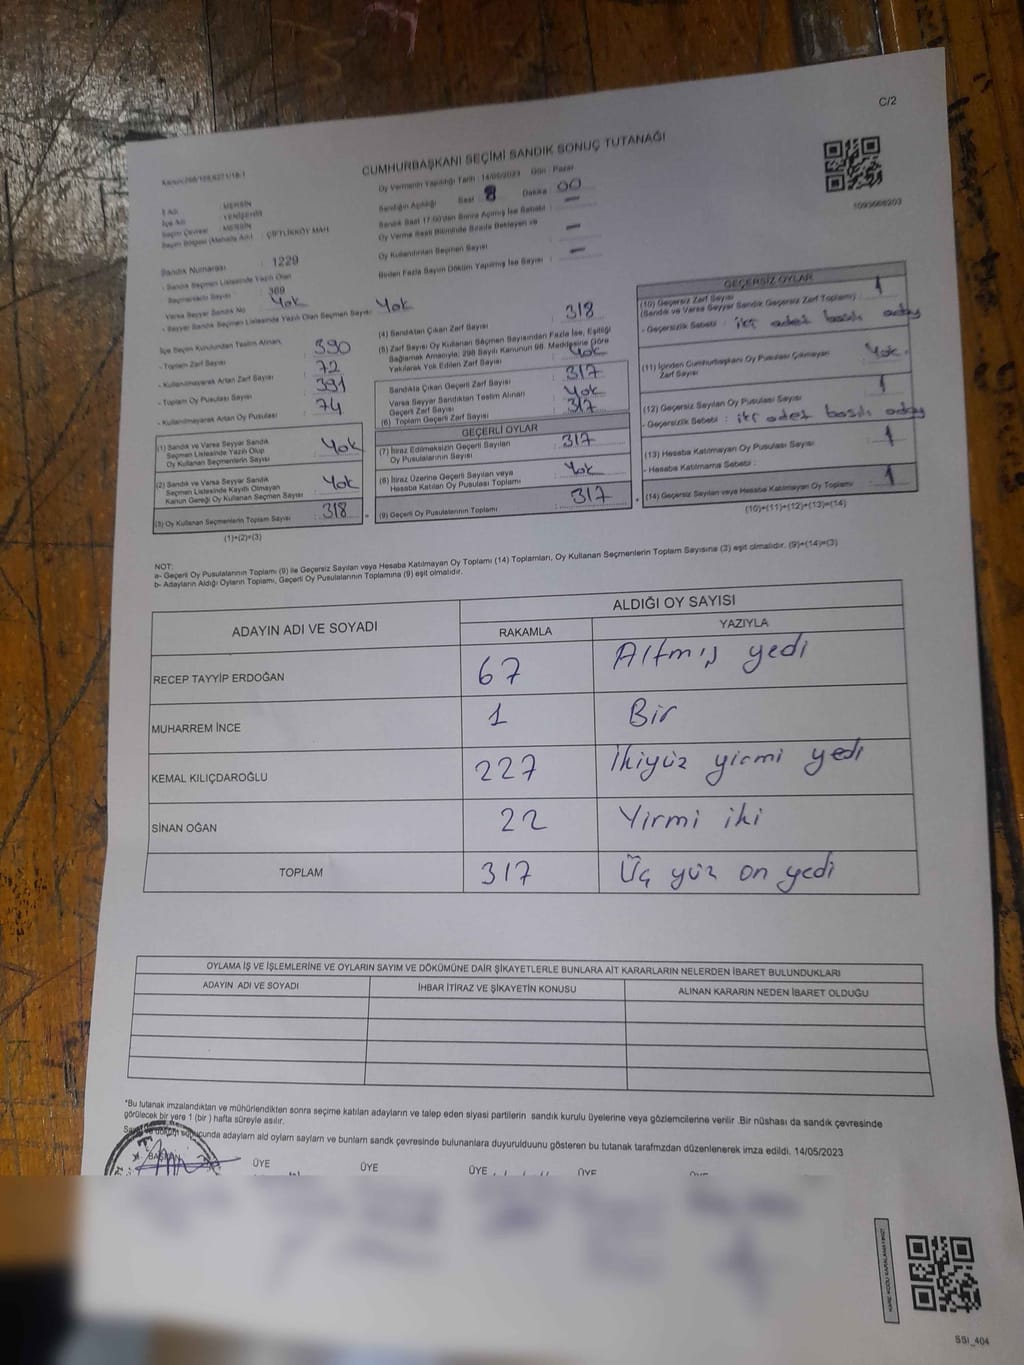 C/2
CUMHURBAŞKANI SEÇİMİ SANDIK SONUÇ TUTANAĞI
Oy Vermenin Yapıldığı Tarih : 14/05/2023 Gün : Pazar
Sandığın Açıldığı Saat : 8 Dakika : 00
Sandık Saat 17:00'den Sonra Açılmış İse Sebebi : —
Oy Verme Saati Bitiminde Sırada Bekleyen ve
Oy Kullandırılan Seçmen Sayısı : —
Birden Fazla Sayım Döküm Yapılmış İse Sayısı : —
1093668203
İl Adı : MERSİN
İlçe Adı : YENİŞEHİR
Seçim Çevresi : MERSİN
Seçim Bölgesi (Mahalle Adı) : ÇİFTLİKKÖY MAH
Sandık Numarası : 1229
- Sandık Seçmen Listesinde Yazılı Olan
Seçmenlerin Sayısı : 369
Varsa Seyyar Sandık No : Yok
- Seyyar Sandık Seçmen Listesinde Yazılı Olan Seçmen Sayısı : Yok
İlçe Seçim Kurulundan Teslim Alınan,
- Toplam Zarf Sayısı : 390
- Kullanılmayarak Artan Zarf Sayısı : 72
- Toplam Oy Pusulası Sayısı : 391
- Kullanılmayarak Artan Oy Pusulası : 74
(1) Sandık ve Varsa Seyyar Sandık
Seçmen Listesinde Yazılı Olup
Oy Kullanan Seçmenlerin Sayısı : Yok
(2) Sandık ve Varsa Seyyar Sandık
Seçmen Listesinde Kayıtlı Olmayan
Kanun Gereği Oy Kullanan Seçmen Sayısı : Yok
(3) Oy Kullanan Seçmenlerin Toplam Sayısı : 318
(1)+(2)=(3)
(4) Sandıktan Çıkan Zarf Sayısı : 318
(5) Zarf Sayısı Oy Kullanan Seçmen Sayısından Fazla İse, Eşitliği
Bağlamak Amacıyla; 298 Sayılı Kanunun 98. Maddesine Göre
Yakılarak Yok Edilen Zarf Sayısı : Yok
Sandıkta Çıkan Geçerli Zarf Sayısı : 317
Varsa Seyyar Sandıktan Teslim Alınan
Geçerli Zarf Sayısı : Yok
(6) Toplam Geçerli Zarf Sayısı : 317
GEÇERLİ OYLAR
(7) İtiraz Edilmeksizin Geçerli Sayılan
Oy Pusulalarının Sayısı : 317
(8) İtiraz Üzerine Geçerli Sayılan veya
Hesaba Katılan Oy Pusulası Toplamı : Yok
(9) Geçerli Oy Pusulalarının Toplamı : 317
GEÇERSİZ OYLAR
(10) Geçersiz Zarf Sayısı
(Sandık ve Varsa Seyyar Sandık Geçersiz Zarf Toplamı) : 1
- Geçersizlik Sebebi : iki adet basılı aday
(11) İçinden Cumhurbaşkanı Oy Pusulası Çıkmayan
Zarf Sayısı : Yok.
(12) Geçersiz Sayılan Oy Pusulası Sayısı : 1
- Geçersizlik Sebebi : iki adet basılı aday
(13) Hesaba Katılmayan Oy Pusulası Sayısı : 1
- Hesaba Katılmama Sebebi :
(14) Geçersiz Sayılan veya Hesaba Katılmayan Oy Toplamı : 1
(10)+(11)+(12)+(13)=(14)
NOT:
a- Geçerli Oy Pusulalarının Toplamı (9) ile Geçersiz Sayılan veya Hesaba Katılmayan Oy Toplamı (14) Toplamları, Oy Kullanan Seçmenlerin Toplam Sayısına (3) eşit olmalıdır. (9)+(14)=(3)
b- Adayların Aldığı Oyların Toplamı, Geçerli Oy Pusulalarının Toplamına (9) eşit olmalıdır.
ADAYIN ADI VE SOYADI
ALDIĞI OY SAYISI
RAKAMLA YAZIYLA
RECEP TAYYİP ERDOĞAN 67 Altmış yedi
MUHARREM İNCE 1 Bir
KEMAL KILIÇDAROĞLU 227 İkiyüz yirmi yedi
SİNAN OĞAN 22 Yirmi iki
TOPLAM 317 Üç yüz on yedi
OYLAMA İŞ VE İŞLEMLERİNE VE OYLARIN SAYIM VE DÖKÜMÜNE DAİR ŞİKAYETLERLE BUNLARA AİT KARARLARIN NELERDEN İBARET BULUNDUKLARI
ADAYIN ADI VE SOYADI İHBAR İTİRAZ VE ŞİKAYETİN KONUSU ALINAN KARARIN NEDEN İBARET OLDUĞU
*Bu tutanak imzalandıktan ve mühürlendikten sonra seçime katılan adayların ve talep eden siyasi partilerin sandık kurulu üyelerine veya gözlemcilerine verilir .Bir nüshası da sandık çevresinde
görülecek bir yere 1 (bir ) hafta süreyle asılır.
sonucunda adayların ald oyların sayların ve bunların sandk çevresinde bulunanlara duyurulduunu gösteren bu tutanak tarafmzdan düzenlenerek imza edildi. 14/05/2023
BAŞKAN ÜYE ÜYE ÜYE ÜYE
KARE KODU KARALAMAYINIZ!
SSI_404